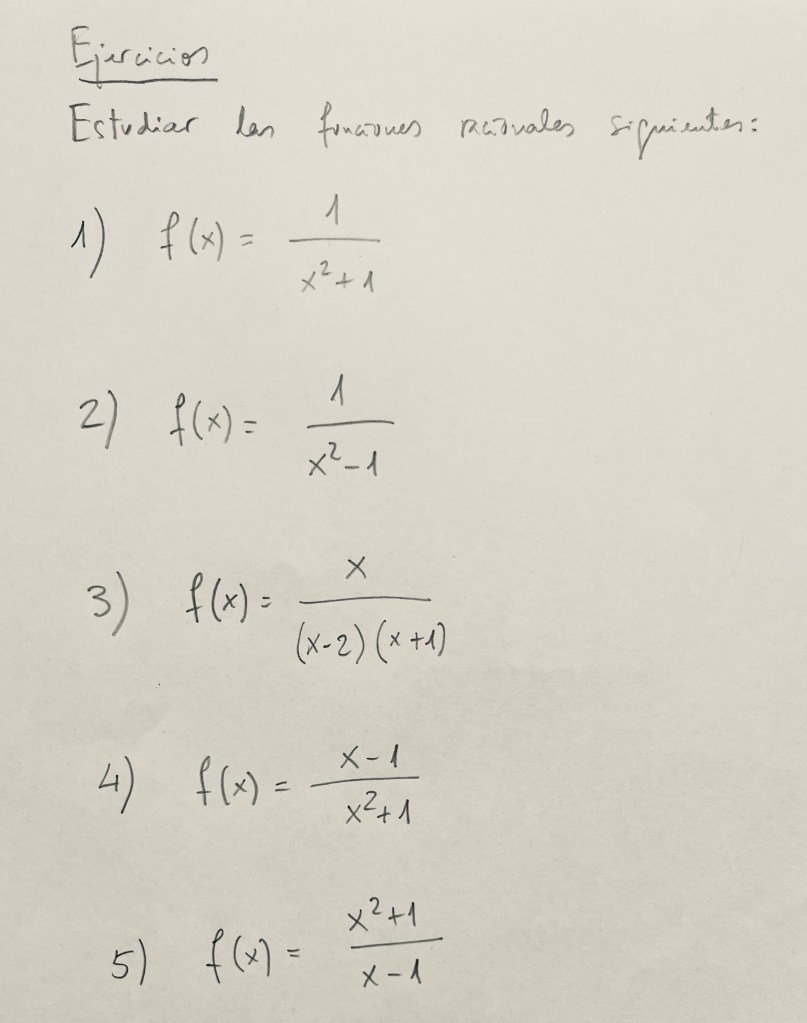 Ejercicios
Estudiar las funciones racionales siguientes:
1) f(x) = 1/(x²+1)
2) f(x) = 1/(x²-1)
3) f(x) = x/((x-2)(x+1))
4) f(x) = (x-1)/(x²+1)
5) f(x) = (x²+1)/(x-1)